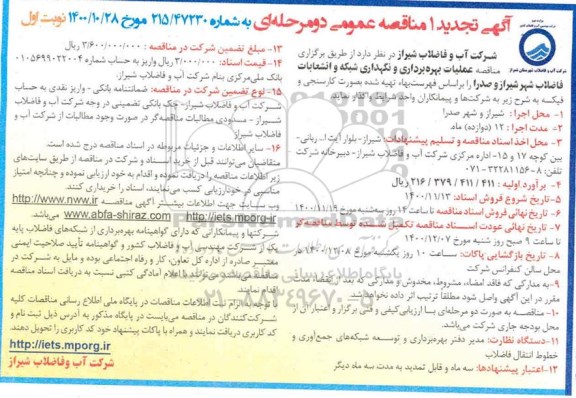 آگهی تجدید ۱ مناقصه عمومی دومرحله‌ای به شماره ۲۱۵/۴۷۲۳۰ مورخ ۱۴۰۰/۱۰/۲۸ نوبت اول
شرکت آب و فاضلاب شیراز در نظر دارد از طریق برگزاری
مناقصه عملیات بهره‌برداری و نگهداری شبکه و انشعابات
فاضلاب شهر شیراز و صدرا را براساس فهرست‌بهاء تهیه شده بصورت کارسنجی و
فیکسه به شرح زیر به شرکت‌ها و پیمانکاران واجد شرایط واگذار نماید.
۱- محل اجرا : شیراز و شهر صدرا
۲- مدت اجرا : ۱۲ (دوازده) ماه.
۳- محل اخذ اسناد مناقصه و تسلیم پیشنهادات: شیراز- بلوار آیت ا... ربانی-
بین کوچه ۱۷ و ۱۵- اداره مرکزی شرکت آب و فاضلاب شیراز- دبیرخانه شرکت
تلفن: ۸-۳۲۲۸۱۱۵۶-۰۷۱
۴- برآورد اولیه : ۴۱۱ / ۴۱۱ / ۳۷۹ / ۲۱۶ ریال
۵- تاریخ شروع فروش اسناد: ۱۴۰۰/۱۱/۱۳
۶- تاریخ نهائی فروش اسناد مناقصه تا ساعت ۱۴ روز سه‌شنبه مورخ ۱۴۰۰/۱۱/۱۹
۷- تاریخ نهائی عودت اسناد مناقصه تکمیل شده توسط مناقصه‌گر
تا ساعت ۹ صبح روز شنبه مورخ ۱۴۰۰/۱۲/۰۷
۸- تاریخ بازگشایی پاکات: ساعت ۱۰ روز یکشنبه مورخ ۱۴۰۰/۱۲/۰۸ در
محل سالن کنفرانس شرکت
۹- به مدارکی که فاقد امضاء، مشروط، مخدوش و مدارکی که بعد از انقضاء مدت
مقرر در این آگهی واصل شود مطلقاً ترتیب اثر داده نخواهد شد.
۱۰- مناقصه به صورت دو مرحله‌ای با ارزیابی کیفی و فنی برگزار و اعتبار آن از
محل بودجه جاری شرکت می‌باشد.
۱۱- دستگاه نظارت: مدیر دفتر بهره‌برداری و توسعه شبکه‌های جمع‌آوری و
خطوط انتقال فاضلاب
۱۲- اعتبار پیشنهادها: سه ماه و قابل تمدید به مدت سه ماه دیگر
۱۳- مبلغ تضمین شرکت در مناقصه : ۳/۶۰۰/۰۰۰/۰۰۰ ریال
۱۴- قیمت اسناد: ۳/۰۰۰/۰۰۰ ریال واریز به حساب شماره ۰۱۰۵۶۹۹۰۲۲۰۰۴
بانک ملی مرکزی بنام شرکت آب و فاضلاب شیراز.
۱۵- نوع تضمین شرکت در مناقصه: ضمانتنامه بانکی - واریز نقدی به حساب
شرکت آب و فاضلاب شیراز- چک بانکی تضمینی در وجه شرکت آب و فاضلاب
شیراز - مسدودی مطالبات مناقصه‌گر در صورت وجود مطالبات از شرکت آب و
فاضلاب شیراز
۱۶- سایر اطلاعات و جزئیات مربوطه در اسناد مناقصه درج شده است.
متقاضیان می‌توانند قبل از خرید اسناد و شرکت در مناقصه از طریق سایت‌های
زیر اطلاعات مناقصه را دریافت نموده و اقدام به خود ارزیابی نموده و چنانچه امتیاز
مناسبی در خودارزیابی کسب می‌نمایند، اسناد را خریداری کنند.
وب سایت جهت اطلاعات بیشتر آگهی مناقصه http://www.nww.ir
http://iets.mporg.ir و www.abfa-shiraz.com می‌باشد.
شرکتها و پیمانکارانی که دارای گواهینامه بهره‌برداری از شبکه‌های فاضلاب پایه
یک از شرکت مهندسی آب و فاضلاب کشور و گواهینامه تأیید صلاحیت ایمنی
معتبر صادره از اداره کل تعاون، کار و رفاه اجتماعی بوده و مایل به شرکت در
مناقصه می‌باشند می‌توانند با اعلام آمادگی کتبی نسبت به دریافت اسناد مناقصه
اقدام نمایند.
با توجه به الزام ثبت اطلاعات مناقصات در پایگاه ملی اطلاع رسانی مناقصات کلیه
شرکت‌کنندگان در مناقصه می‌بایست در پایگاه مذکور به آدرس ذیل ثبت نام و
کد کاربری دریافت نمایند و همراه با پاکات پیشنهاد خود کد کاربری را تحویل دهند.
http://iets.mporg.ir
شرکت آب و فاضلاب شیراز